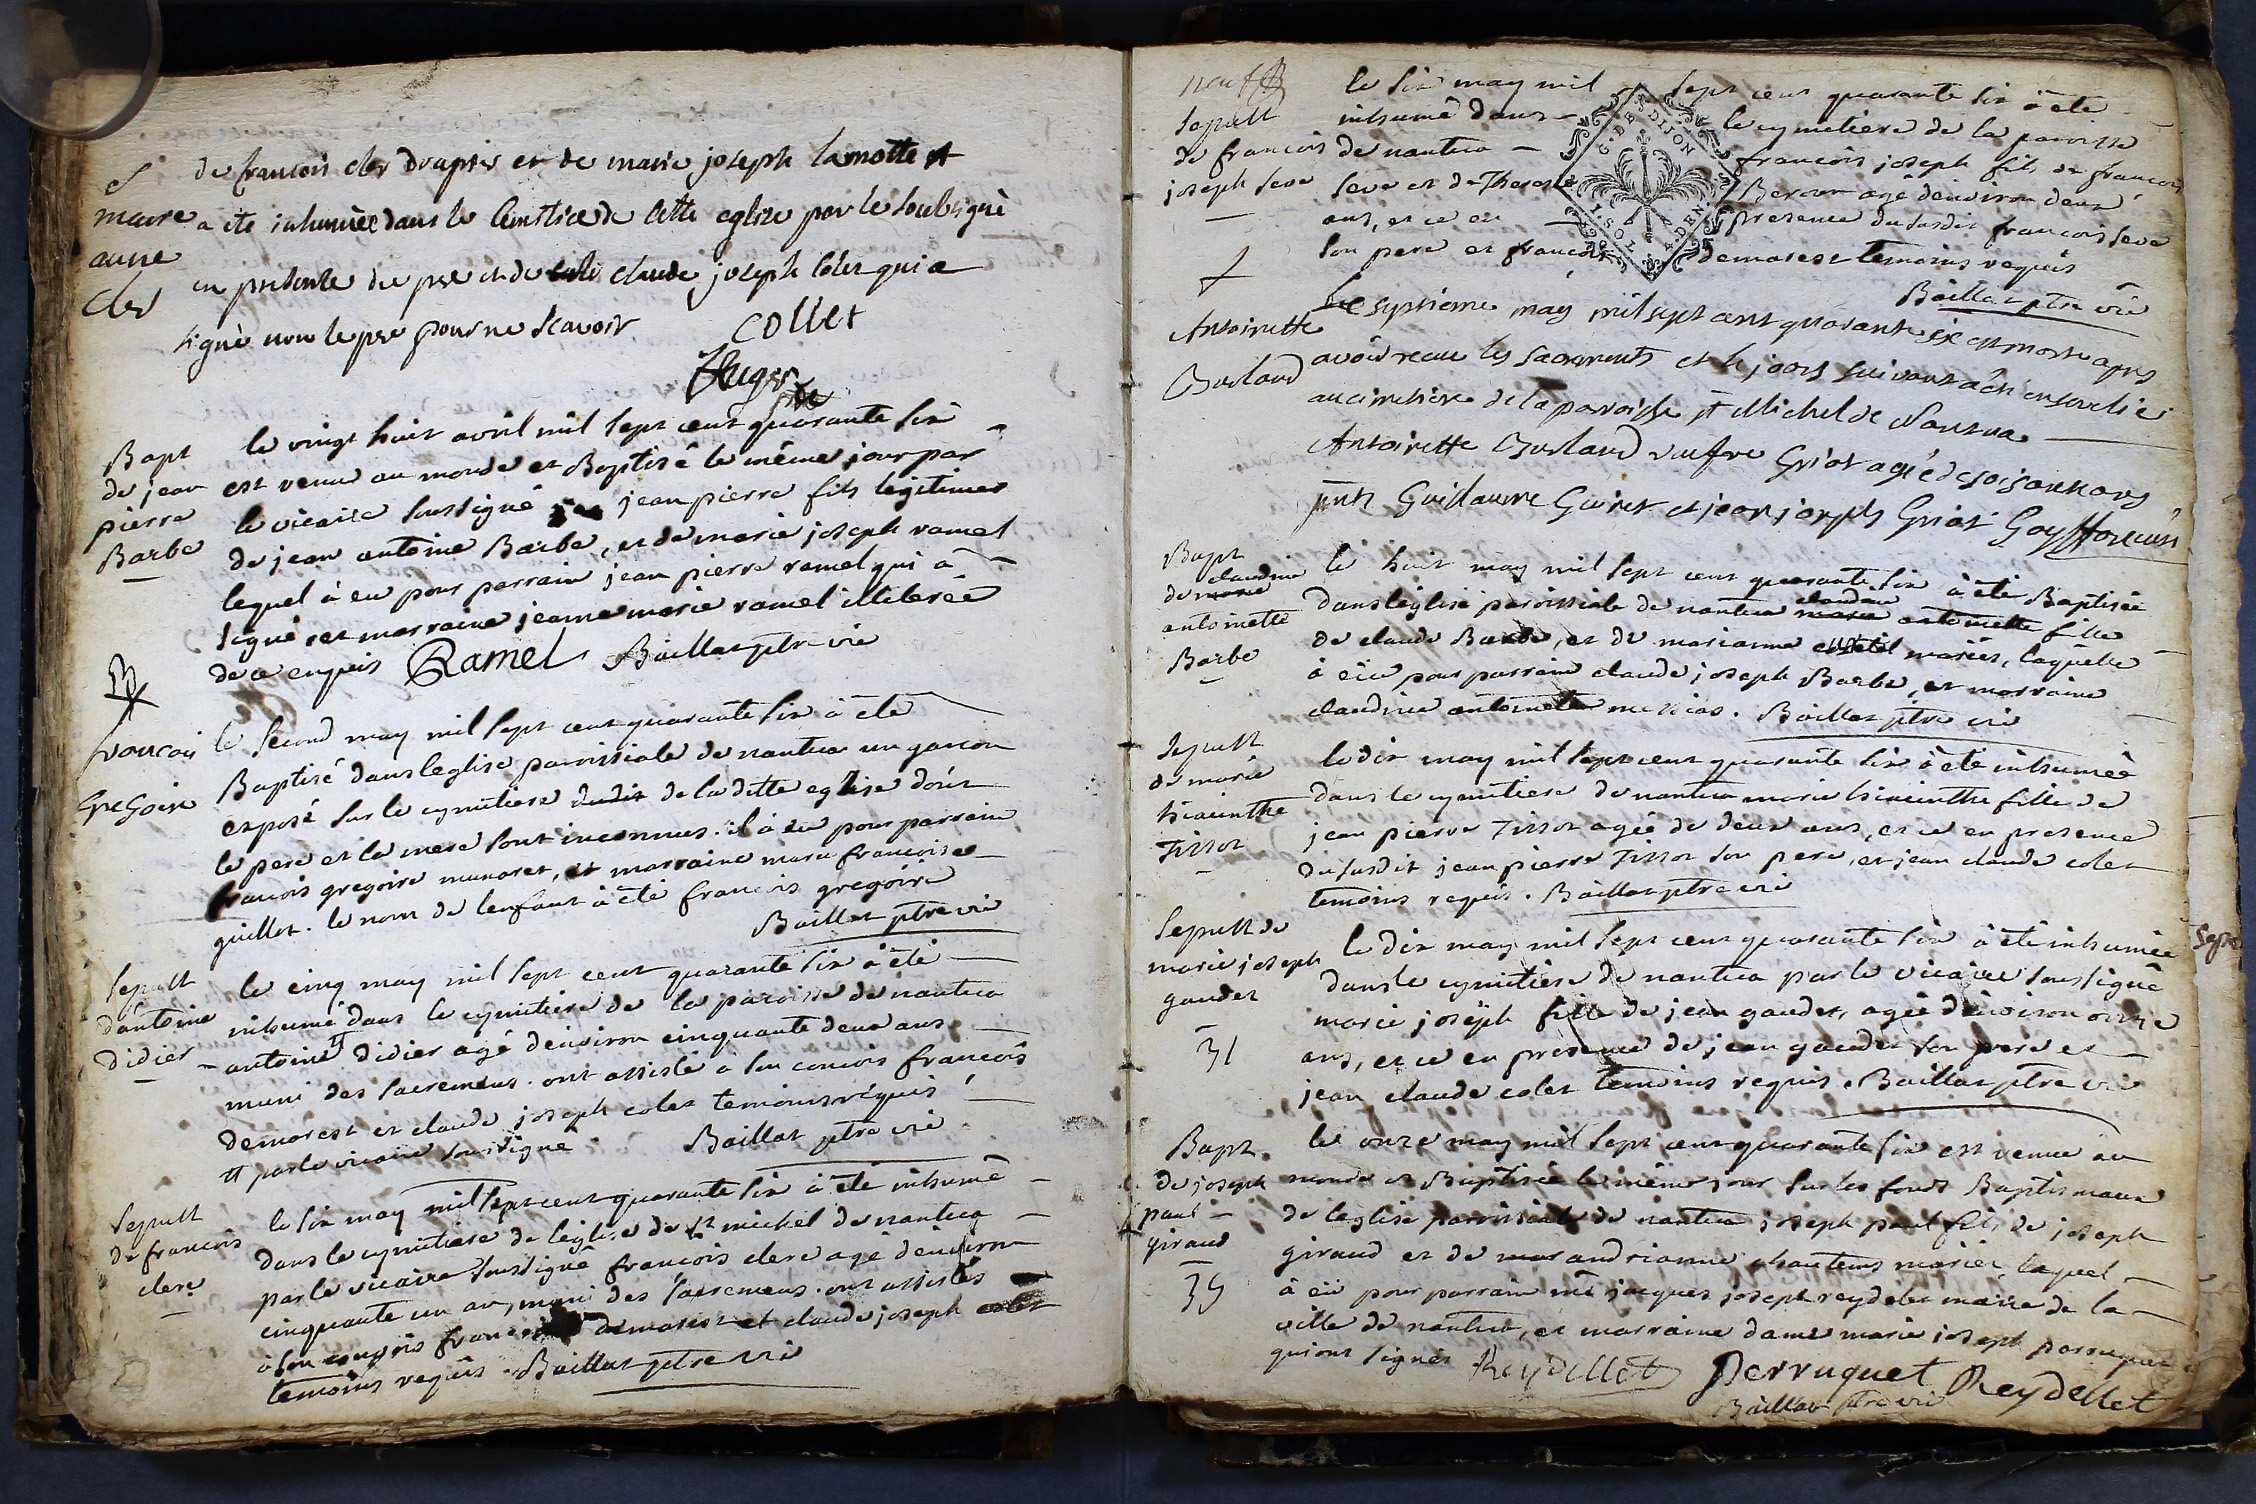 S
marie
anne
Cler
de francois cler drapier et de marie joseph lamotte
a ete inhumèe dans le Cemstiere de Cette eglise par le soubsignè
en presence du pre et de claude joseph Colet qui a
signè non le pre pour ne scavoir
Collet
Auger
Bapt
de jean
pierre
Barbe
le vingt huit avril mil sept cent quarante six
est venu au monde et Baptisé le même jour par
le vicaire soussigné jean pierre fils legitime
de jean antoine Barbe, et de marie joseph ramel
lequel à eu pour parrain jean pierre ramel qui à
signé, et marraine jeanne marie ramel illiterée
de ce enquis Ramel Baillat ptre vic
B
francois
Gregoire
le second may mil sept cent quarante six à été
Baptisé dans leglise paroissiale de nantua un garcon
exposé sur le cymitiere dudit de la ditte eglise dont
le pere et la mere sont inconnus. il à eu pour parrain
francois gregoire munaret, et marraine marie francoise
guillot. le nom de lenfant à été francois gregoire
Baillat ptre vic
Sepult
d'antoine
didier
le cinq may mil sept cent quarante six à été
inhumé dans le cymitiere de la paroisse de nantua
antoine didier agé denviron cinquante deux ans
muni des sacremens. ont assisté a son convois francois
demorest et claude joseph colet temoins requis
par le vicaire soussigné Baillat ptre vic
Sepult
de francois
clerc
le six may mil sept cent quarante six à été inhumé
dans le cymitiere de leglise de st michel de nantua
par le vicaire soussigné francois clerc agé denviron
cinquante un an, muni des sacremens. ont assistés
à son convois francois demorest et claude joseph colet
temoins requis. Baillat ptre vic
neuf
Sepult
de francois
joseph seve
le six may mil sept cent quarante six à été
inhumé dans le cymitiere de la paroisse
de nantua francois joseph fils de francois
seve et de Therese agé denviron deux
ans, et ce en presence du susdit francois seve
son pere et francois demorest temoins requis
Baillat ptre vic
G. DE DIJON
1. SOL 4. DEN.
Antoinette
Burland
Le septieme may mil sept cent quarante six est morte apres
avoir receu les sacrements et le jours suivant a été ensevelie
au cimetiere de la paroisse st Michel de Nantua
Antoinette Burland veufve Griot agé de soisante ans
pnts Guillaume Goiret et jean joseph Griot
Bapt
de marie claudine
antoinette
Barbe
le huit may mil sept cent quarante six à été Baptisée
dans léglise paroissiale de nantua marie claudine antoinette fille
de claude Barbe, et de marianne mariés, laquelle
à eüe pour parrain claude joseph Barbe, et marraine
claudine antoinette Baillat ptre vic
Sepult
de marie
hiacinthe
Tissot
le dix may mil sept cent quarante six à été inhumée
dans le cymitiere de nantua marie hiacinthe fille de
jean pierre Tissot agée de deux ans, et ce en presence
du susdit jean pierre Tissot son pere, et jean claude colet
temoins requis. Baillat ptre vic
Sepult de
marie joseph
gaudet
31
le dix may mil sept cent quarante six à été inhumée
dans le cymitière de nantua par le vicaire soussigné
marie joseph fille de jean gaudet, agée denviron onze
ans, et ce en presence de jean gaudet son pere et
jean claude colet temoins requis. Baillat ptre vic
Sepu
Bapt.
de joseph
paul
giraud
le onze may mil sept cent quarante six est venu au
monde et Baptisée le même jour sur les fonds Baptismaux
de leglise paroissiale de nantua joseph paul fils de joseph
giraud et de andrianne chantems mariés, lequel
à eü pour parrain jacques joseph reydelet maire de la
ville de nantua, et marraine dame marie joseph perruquet
qui ont signés Reydellet Perruquet Reydellet
Baillat ptre vic